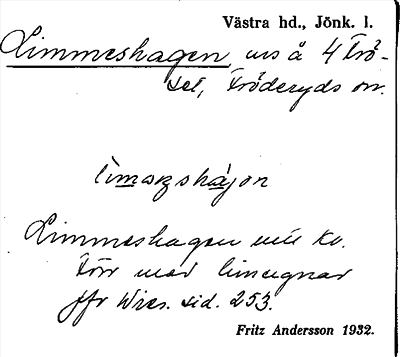 Västra hd., Jönk. l.
Limmeshagen, urs å 4 Frö-
set, Fröderyds sn.
limɔzshàjɔn
Limmeshagen
Förr med limugnar
jfr Wies. sid. 253.
Fritz Andersson 1932.